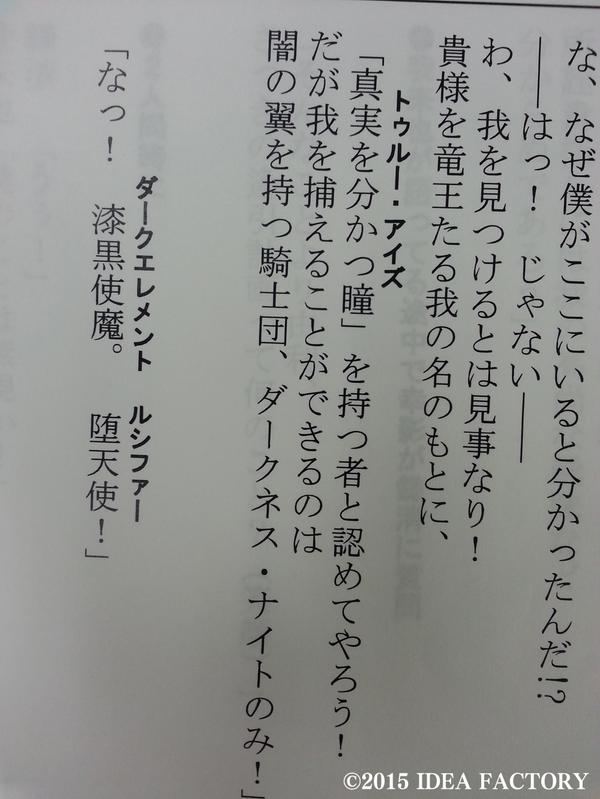 な、なぜ僕がここにいると分かったんだ!?
――はっ！　じゃない――
わ、我を見つけるとは見事なり！
貴様を竜王たる我の名のもとに、
トゥルー・アイズ
「真実を分かつ瞳」を持つ者と認めてやろう！
だが我を捕えることができるのは
闇の翼を持つ騎士団、ダークネス・ナイトのみ！」
ダークエレメント　ルシファー
「なっ！　漆黒使魔。　堕天使！」
©2015 IDEA FACTORY